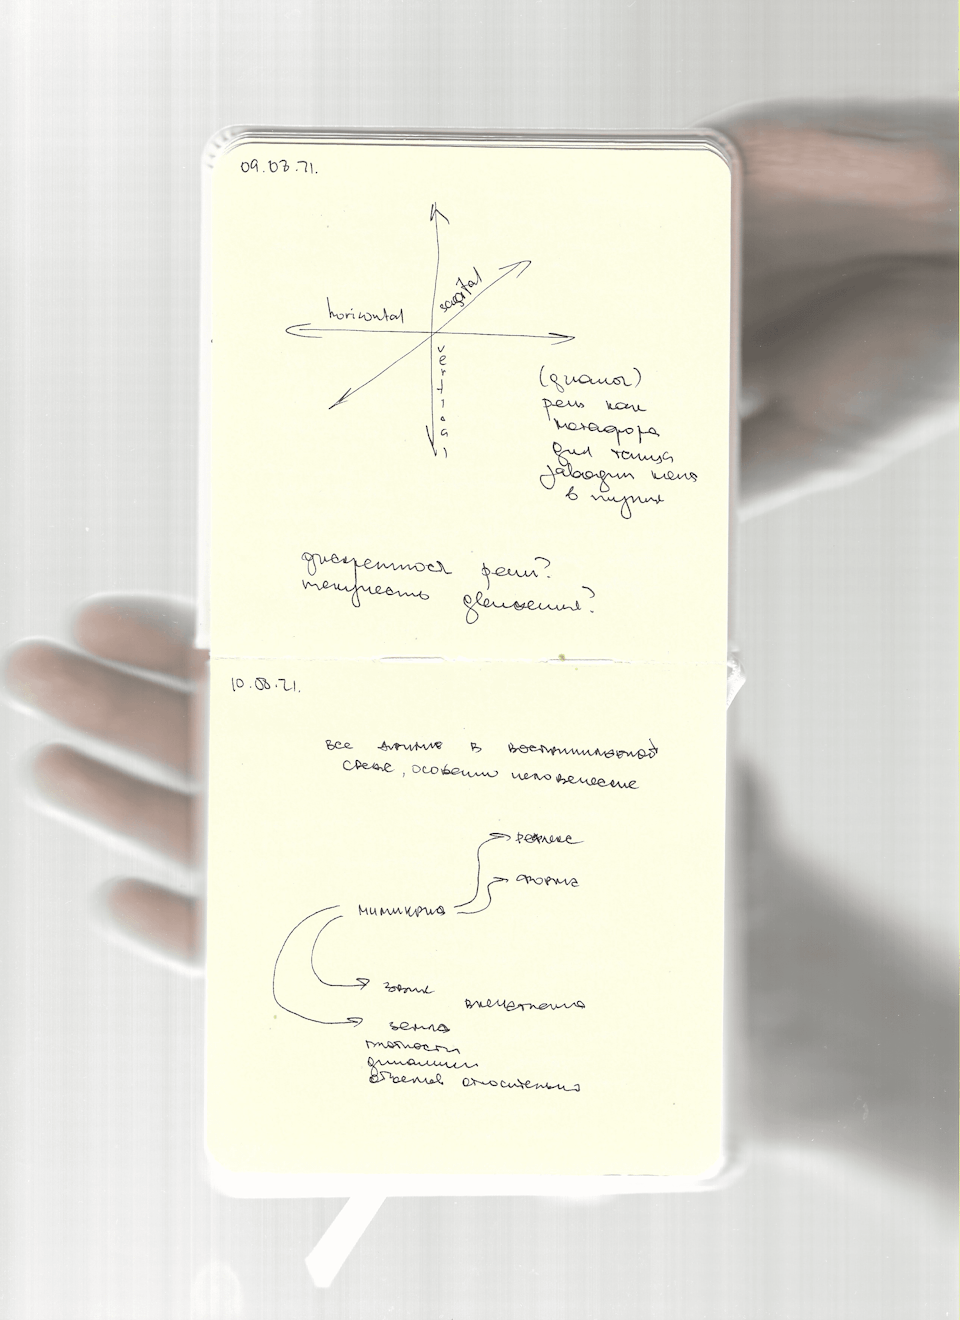 09.03.21.
horizontal
sagital
vertical
(диалог)
речь как
метафора
для танца
заводит меня
в тупик
дискретность речи?
текучесть движения?
10.03.21.
все данные в
среде, особенно человеческие
рефлекс
форма
мимикрия
звук
впечатления
земля
плотности
динамики
объемов относительно